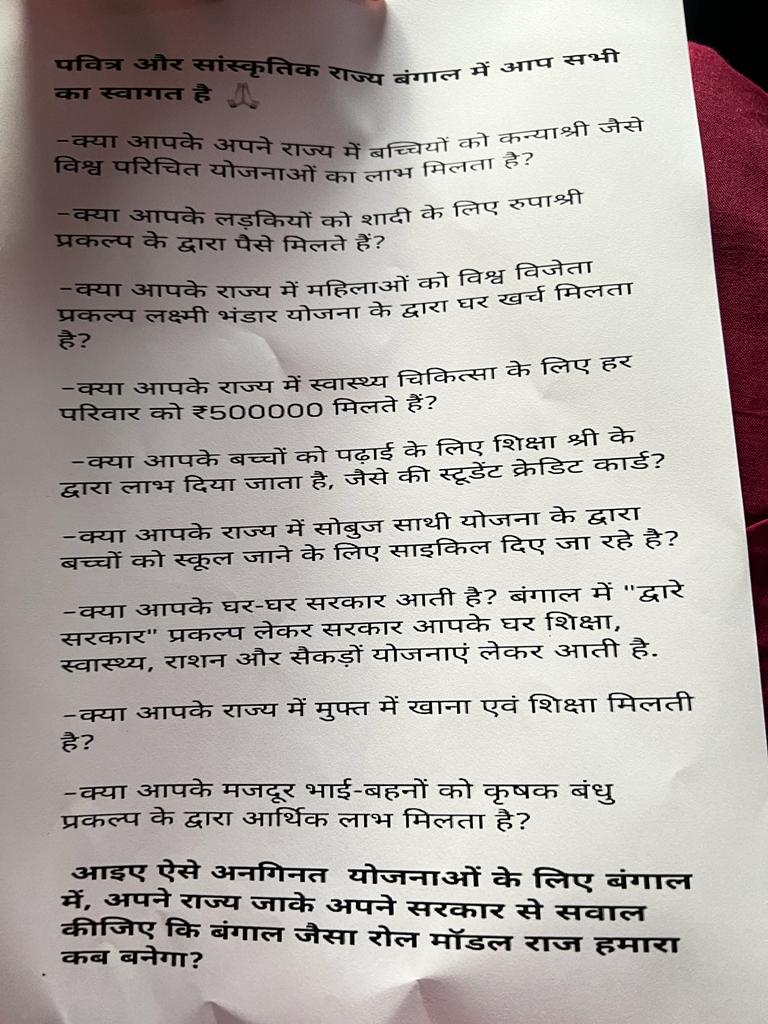 पवित्र और सांस्कृतिक राज्य बंगाल में आप सभी
का स्वागत है 🙏
-क्या आपके अपने राज्य में बच्चियों को कन्याश्री जैसे
विश्व परिचित योजनाओं का लाभ मिलता है?
-क्या आपके लड़कियों को शादी के लिए रुपाश्री
प्रकल्प के द्वारा पैसे मिलते हैं?
-क्या आपके राज्य में महिलाओं को विश्व विजेता
प्रकल्प लक्ष्मी भंडार योजना के द्वारा घर खर्च मिलता
है?
-क्या आपके राज्य में स्वास्थ्य चिकित्सा के लिए हर
परिवार को ₹500000 मिलते हैं?
-क्या आपके बच्चों को पढ़ाई के लिए शिक्षा श्री के
द्वारा लाभ दिया जाता है, जैसे की स्टूडेंट क्रेडिट कार्ड?
-क्या आपके राज्य में सोबुज साथी योजना के द्वारा
बच्चों को स्कूल जाने के लिए साइकिल दिए जा रहे है?
-क्या आपके घर-घर सरकार आती है? बंगाल में "द्वारे
सरकार" प्रकल्प लेकर सरकार आपके घर शिक्षा,
स्वास्थ्य, राशन और सैकड़ों योजनाएं लेकर आती है.
-क्या आपके राज्य में मुफ्त में खाना एवं शिक्षा मिलती
है?
-क्या आपके मजदूर भाई-बहनों को कृषक बंधु
प्रकल्प के द्वारा आर्थिक लाभ मिलता है?
आइए ऐसे अनगिनत योजनाओं के लिए बंगाल
में, अपने राज्य जाके अपने सरकार से सवाल
कीजिए कि बंगाल जैसा रोल मॉडल राज हमारा
कब बनेगा?